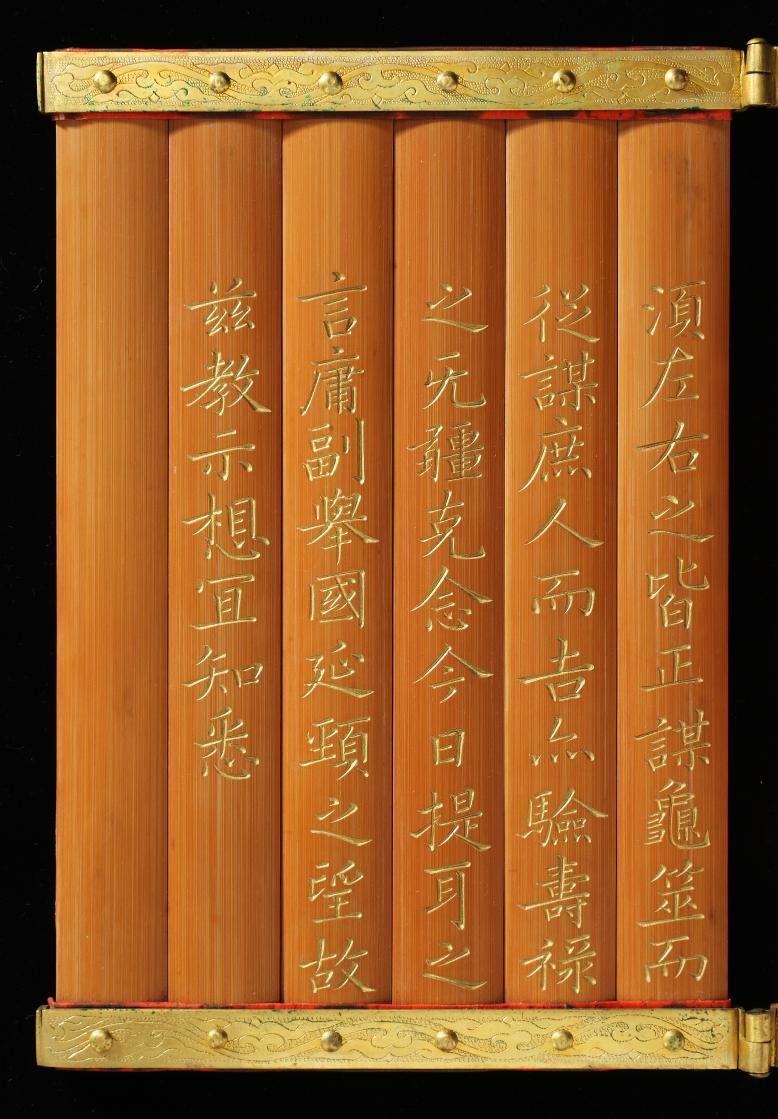 須左右之皆正謀龜筮而
從謀庶人而吉亦驗壽祿
之无疆克念今日提耳之
言庸副舉國延頸之望故
玆教示想宜知悉